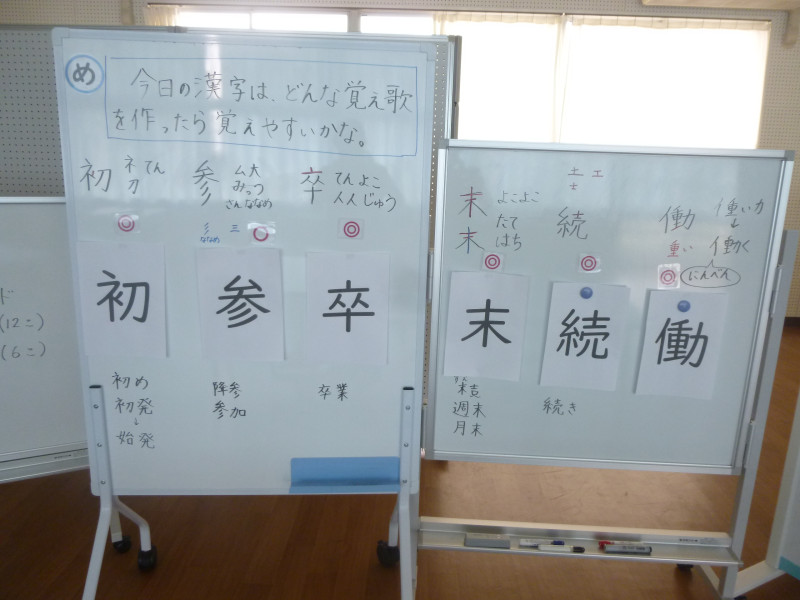 め
今日の漢字は、どんな覚え歌
を作ったら覚えやすいかな。
初
ネてん
刀
参
ム大
みっつ
さんななめ
彡 三
ななめ
卒
てんよこ
人人じゅう
初
参
卒
初め
初発
始発
降参
参加
卒業
ド
(12こ)
(6こ)
末
よこよこ
たて
末
はち
土 工
士
続
働
重い
働く
にんべん
末
続
働
週末
月末
続き